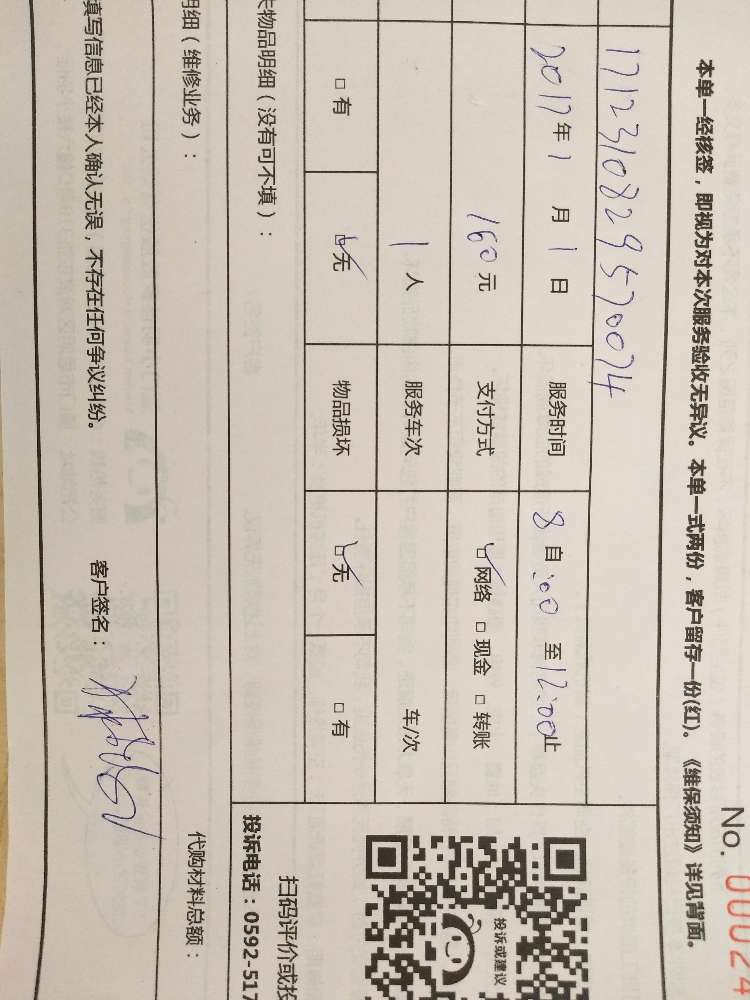 No. 00024
本单一经核签，即视为对本次服务验收无异议。本单一式两份，客户留存一份(红)。《维保须知》详见背面。
1712310829570074
2017年1月1日 服务时间 自8:00至12:00止
160元 支付方式 网络 现金 转账
1人 服务车次 车/次
有 无 物品损坏 无 有
投诉或建议
失物品明细（没有可不填）：
扫码评价或投
投诉电话：0592-517
明细（维修业务）：
代购材料总额：
填写信息已经本人确认无误，不存在任何争议纠纷。 客户签名：